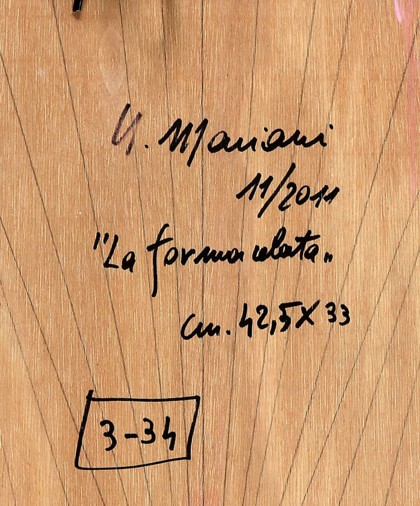 U. Mariani
11/2011
"La forma celata"
cm. 42,5 X 33
3-34